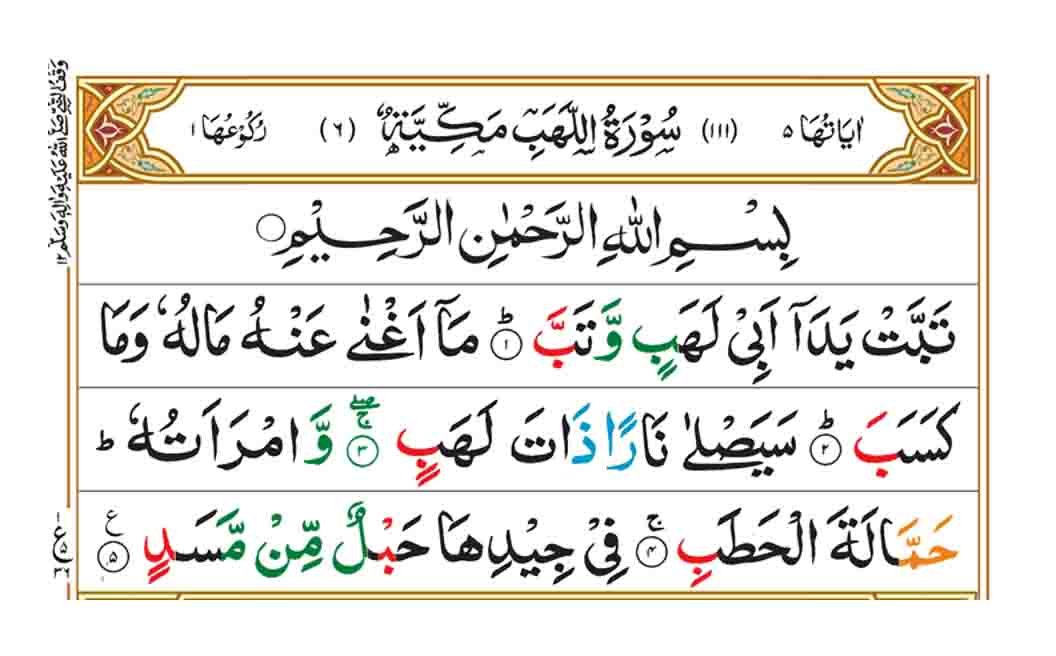 اٰیَاتُهَا ۵ (۱۱۱) سُوْرَةُ اللَّهَبِ مَكِّيَّةٌ (۶) رُكُوْعُهَا ۱
بِسْمِ اللّٰهِ الرَّحْمٰنِ الرَّحِيْمِ
تَبَّتْ يَدَاۤ اَبِيْ لَهَبٍ وَّتَبَّ ؕ‏﴿۱﴾ مَاۤ اَغْنٰى عَنْهُ مَالُهٗ وَمَا
كَسَبَ ؕ‏﴿۲﴾ سَيَصْلٰى نَارًا ذَاتَ لَهَبٍ ۖۚ‏﴿۳﴾ وَّ امْرَاَتُهٗ ؕ
حَمَّالَةَ الْحَطَبِ ۚ‏﴿۴﴾ فِيْ جِيْدِهَا حَبْلٌ مِّنْ مَّسَدٍ ﴿۵﴾ ع
وقف النبی صلی اللہ علیه واٰلهٖ وسلم ۱۲